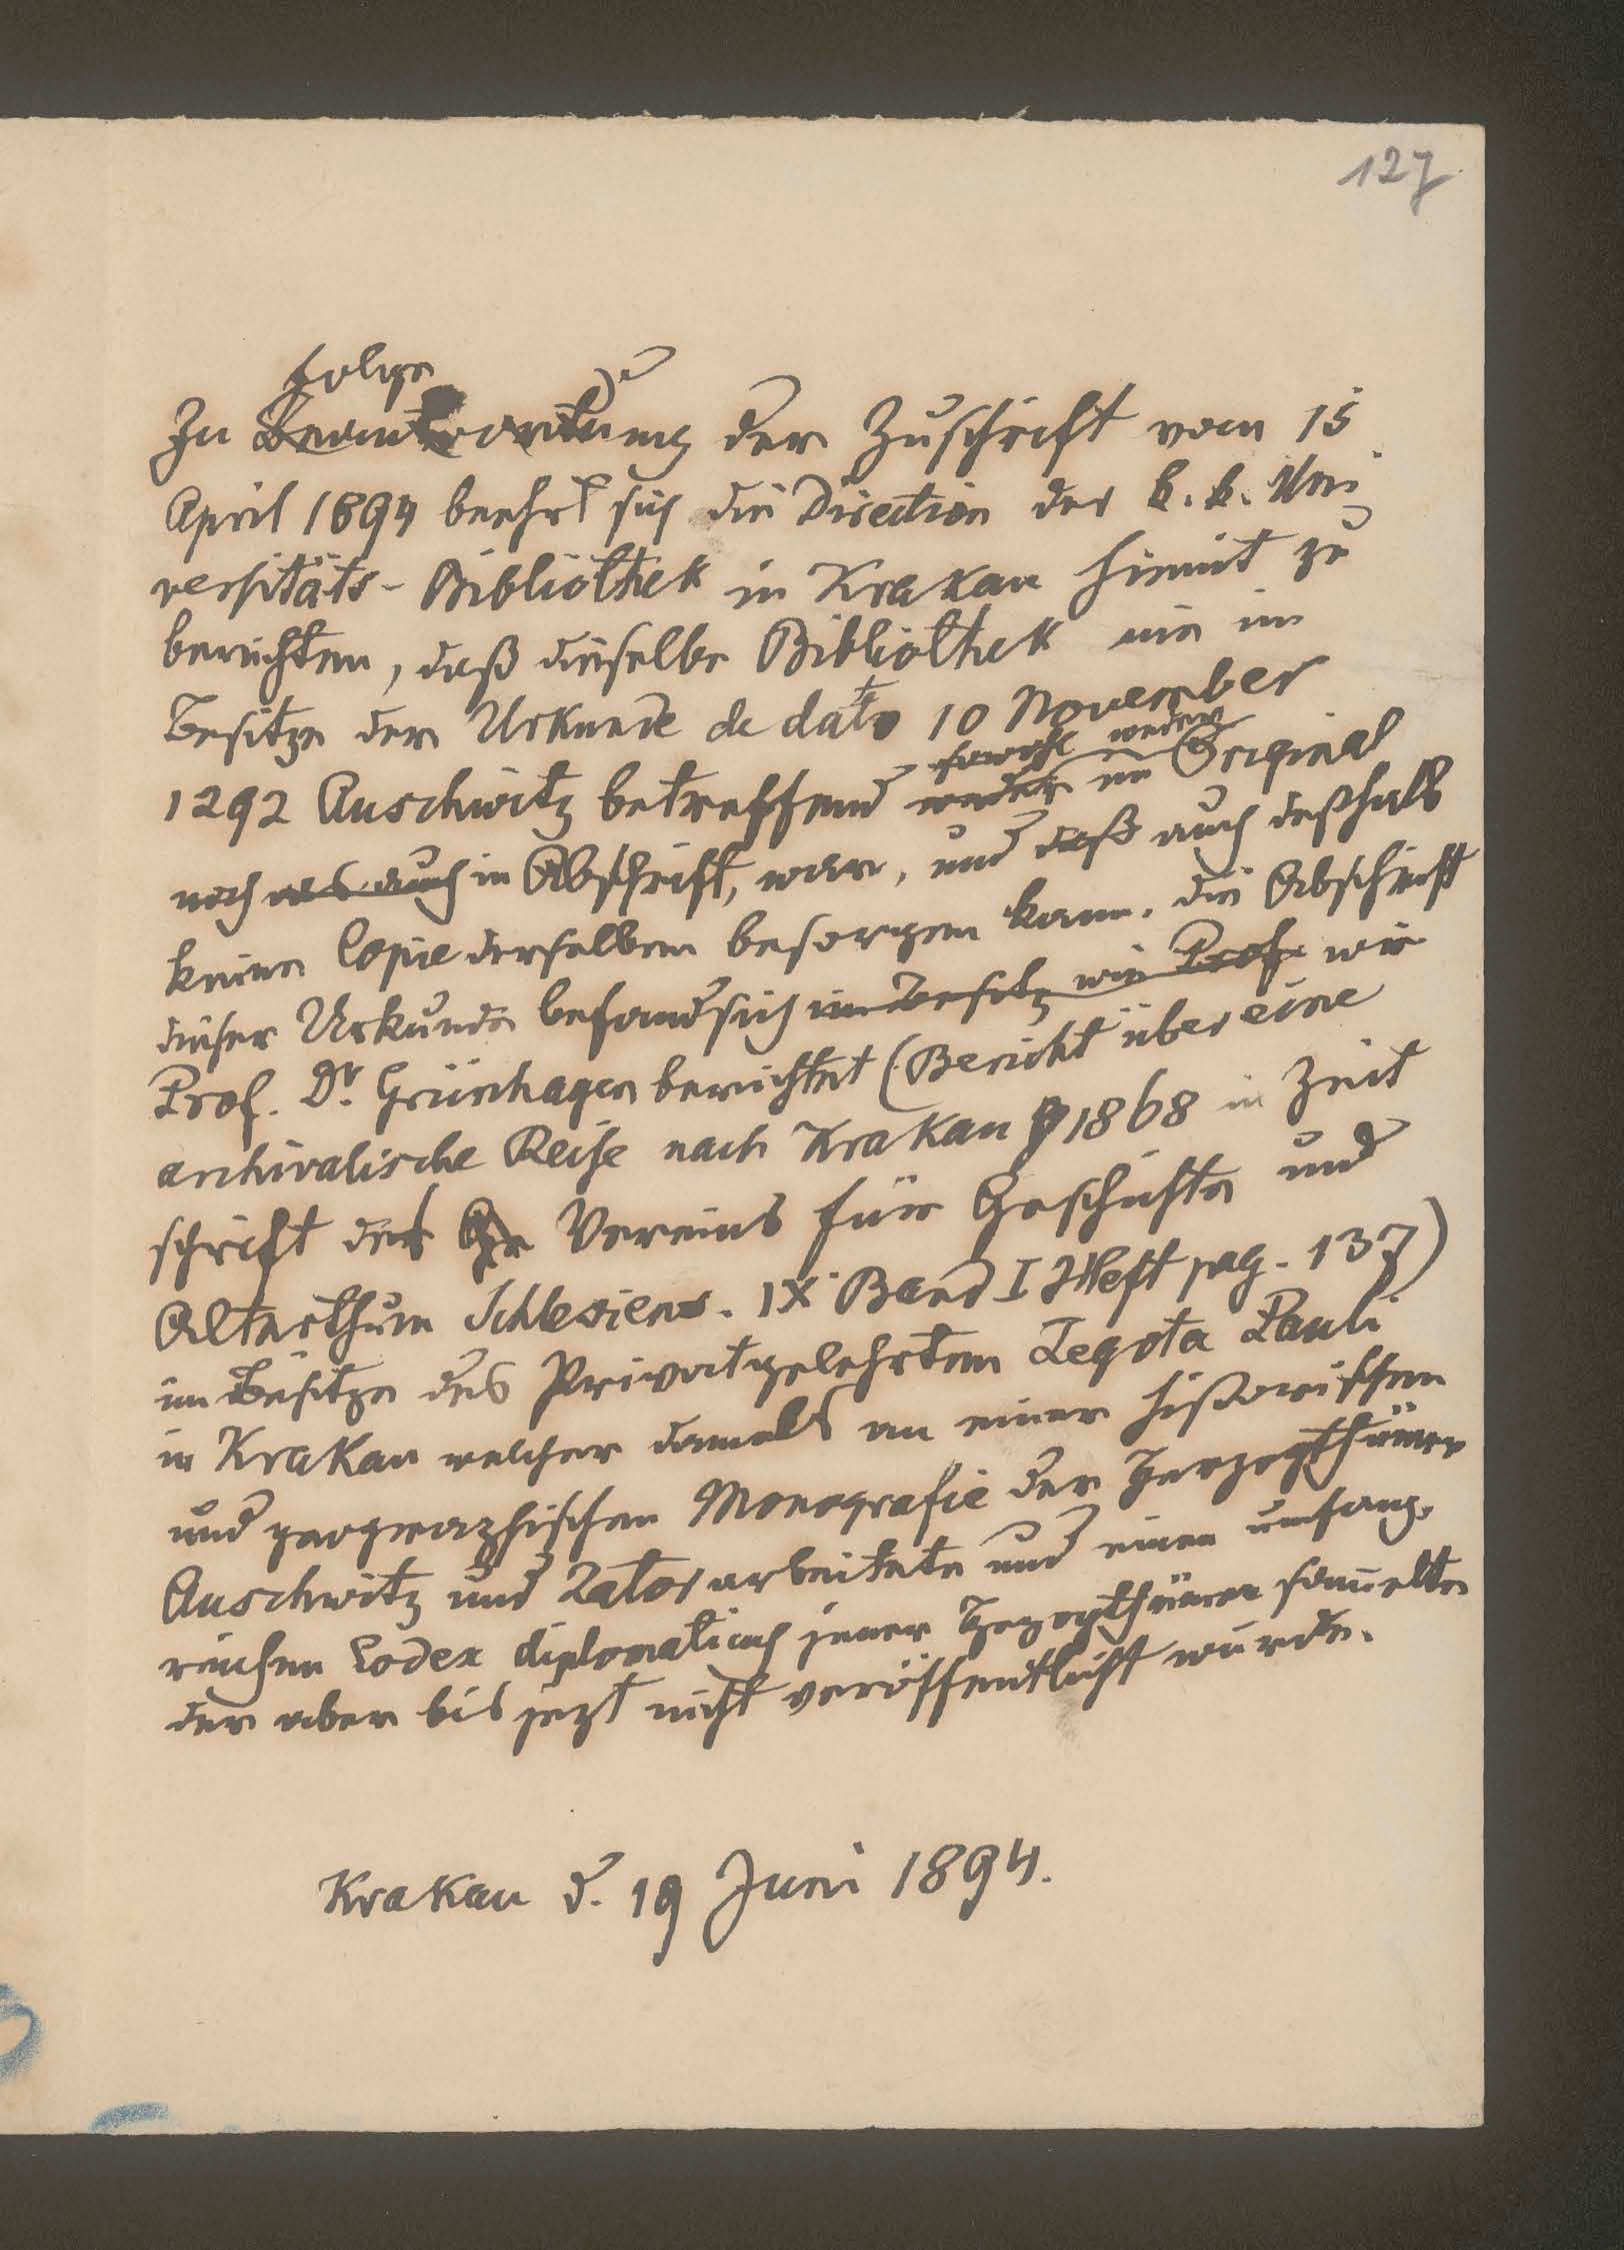 127
folge
Zu Beantwortung der Zuschrift vom 15
April 1894 beehrt sich die Direction der k. k. Uni
versitäts-Bibliothek in Krakau hiemit zu
berichten, daß dieselbe Bibliothek nie im
Besitze der Urkunde de dato 10 November
sowohl weder
1292 Auschwitz betreffend weder im Original
noch als auch in Abschrift, war, und daß auch deßhalb
keine Copie derselben besorgen kann. Die Abschrift
dieser Urkunde befand sich im Besitz wie Prof. wie
Prof. Dr. Grünhagen berichtet (Bericht über eine
archivalische Reise nach Krakau 1868 in Zeit
schrift des Ge Vereins für Geschichte und
Alterthum Schlesiens. IX Band I Heft pag. 137)
im Besitze des Privatgelehrten Zegota Pauli
in Krakau welcher damals an einer historischen
und geographischen Monografie der Herzogthümer
Auschwitz und Zator arbeitete und einen umfang-
reichen Codex diplomaticus jener Herzogthümer sammelte
der aber bis jezt nicht veröffentlicht wurde.
Krakau d. 19 Juni 1894.